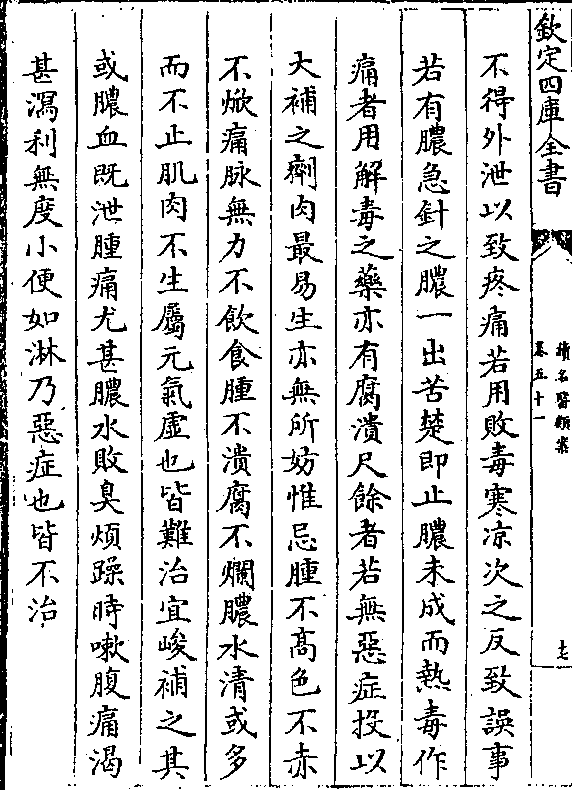 欽定四庫全書
續名醫類案
卷五十一
十七
不得外泄以致疼痛若用敗毒寒凉次之反致誤事
若有膿急針之膿一出苦楚即止膿未成而熱毒作
痛者用解毒之藥亦有腐潰尺餘者若無惡症投以
大補之劑肉最易生亦無所妨惟忌腫不高色不赤
不焮痛脉無力不飲食腫不潰腐不爛膿水清或多
而不止肌肉不生屬元氣虛也皆難治宜峻補之其
或膿血既泄腫痛尤甚膿水敗臭煩躁時嗽腹痛渴
甚瀉利無度小便如淋乃惡症也皆不治